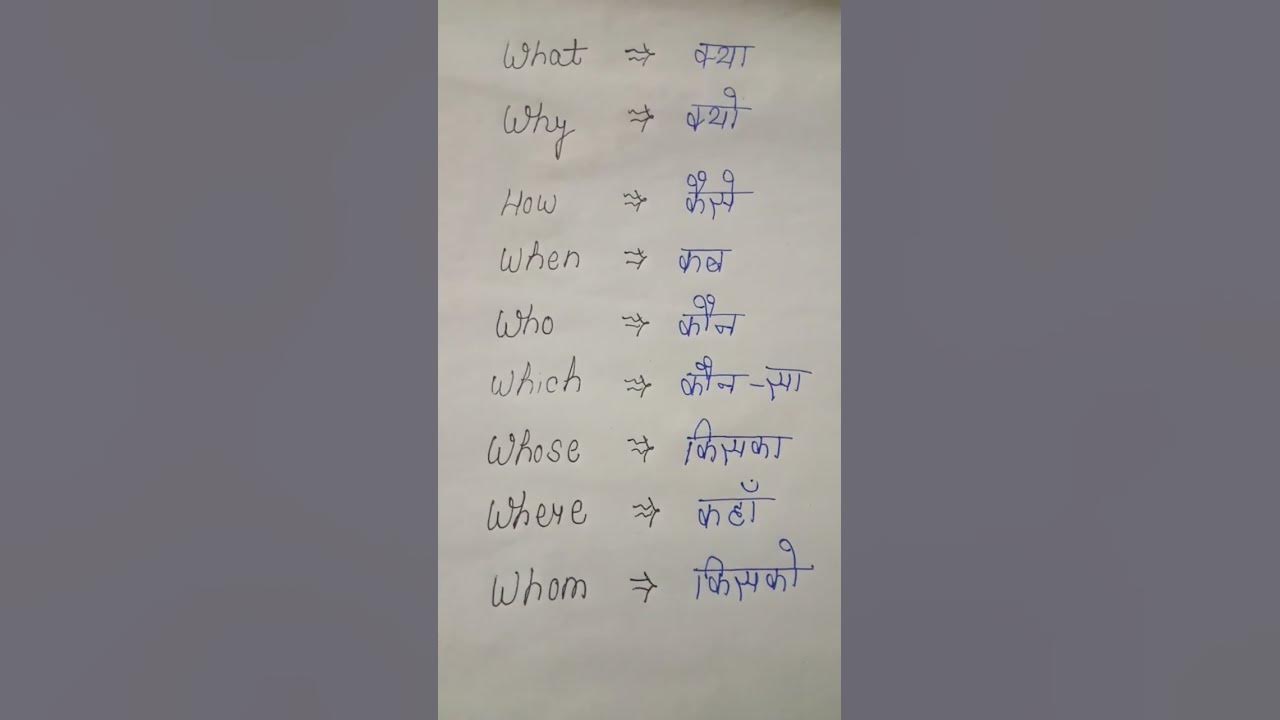 What ⇒ क्या
Why ⇒ क्यो
How ⇒ कैसे
When ⇒ कब
Who ⇒ कौन
Which ⇒ कौन-सा
Whose ⇒ किसका
Where ⇒ कहाँ
Whom ⇒ किसको